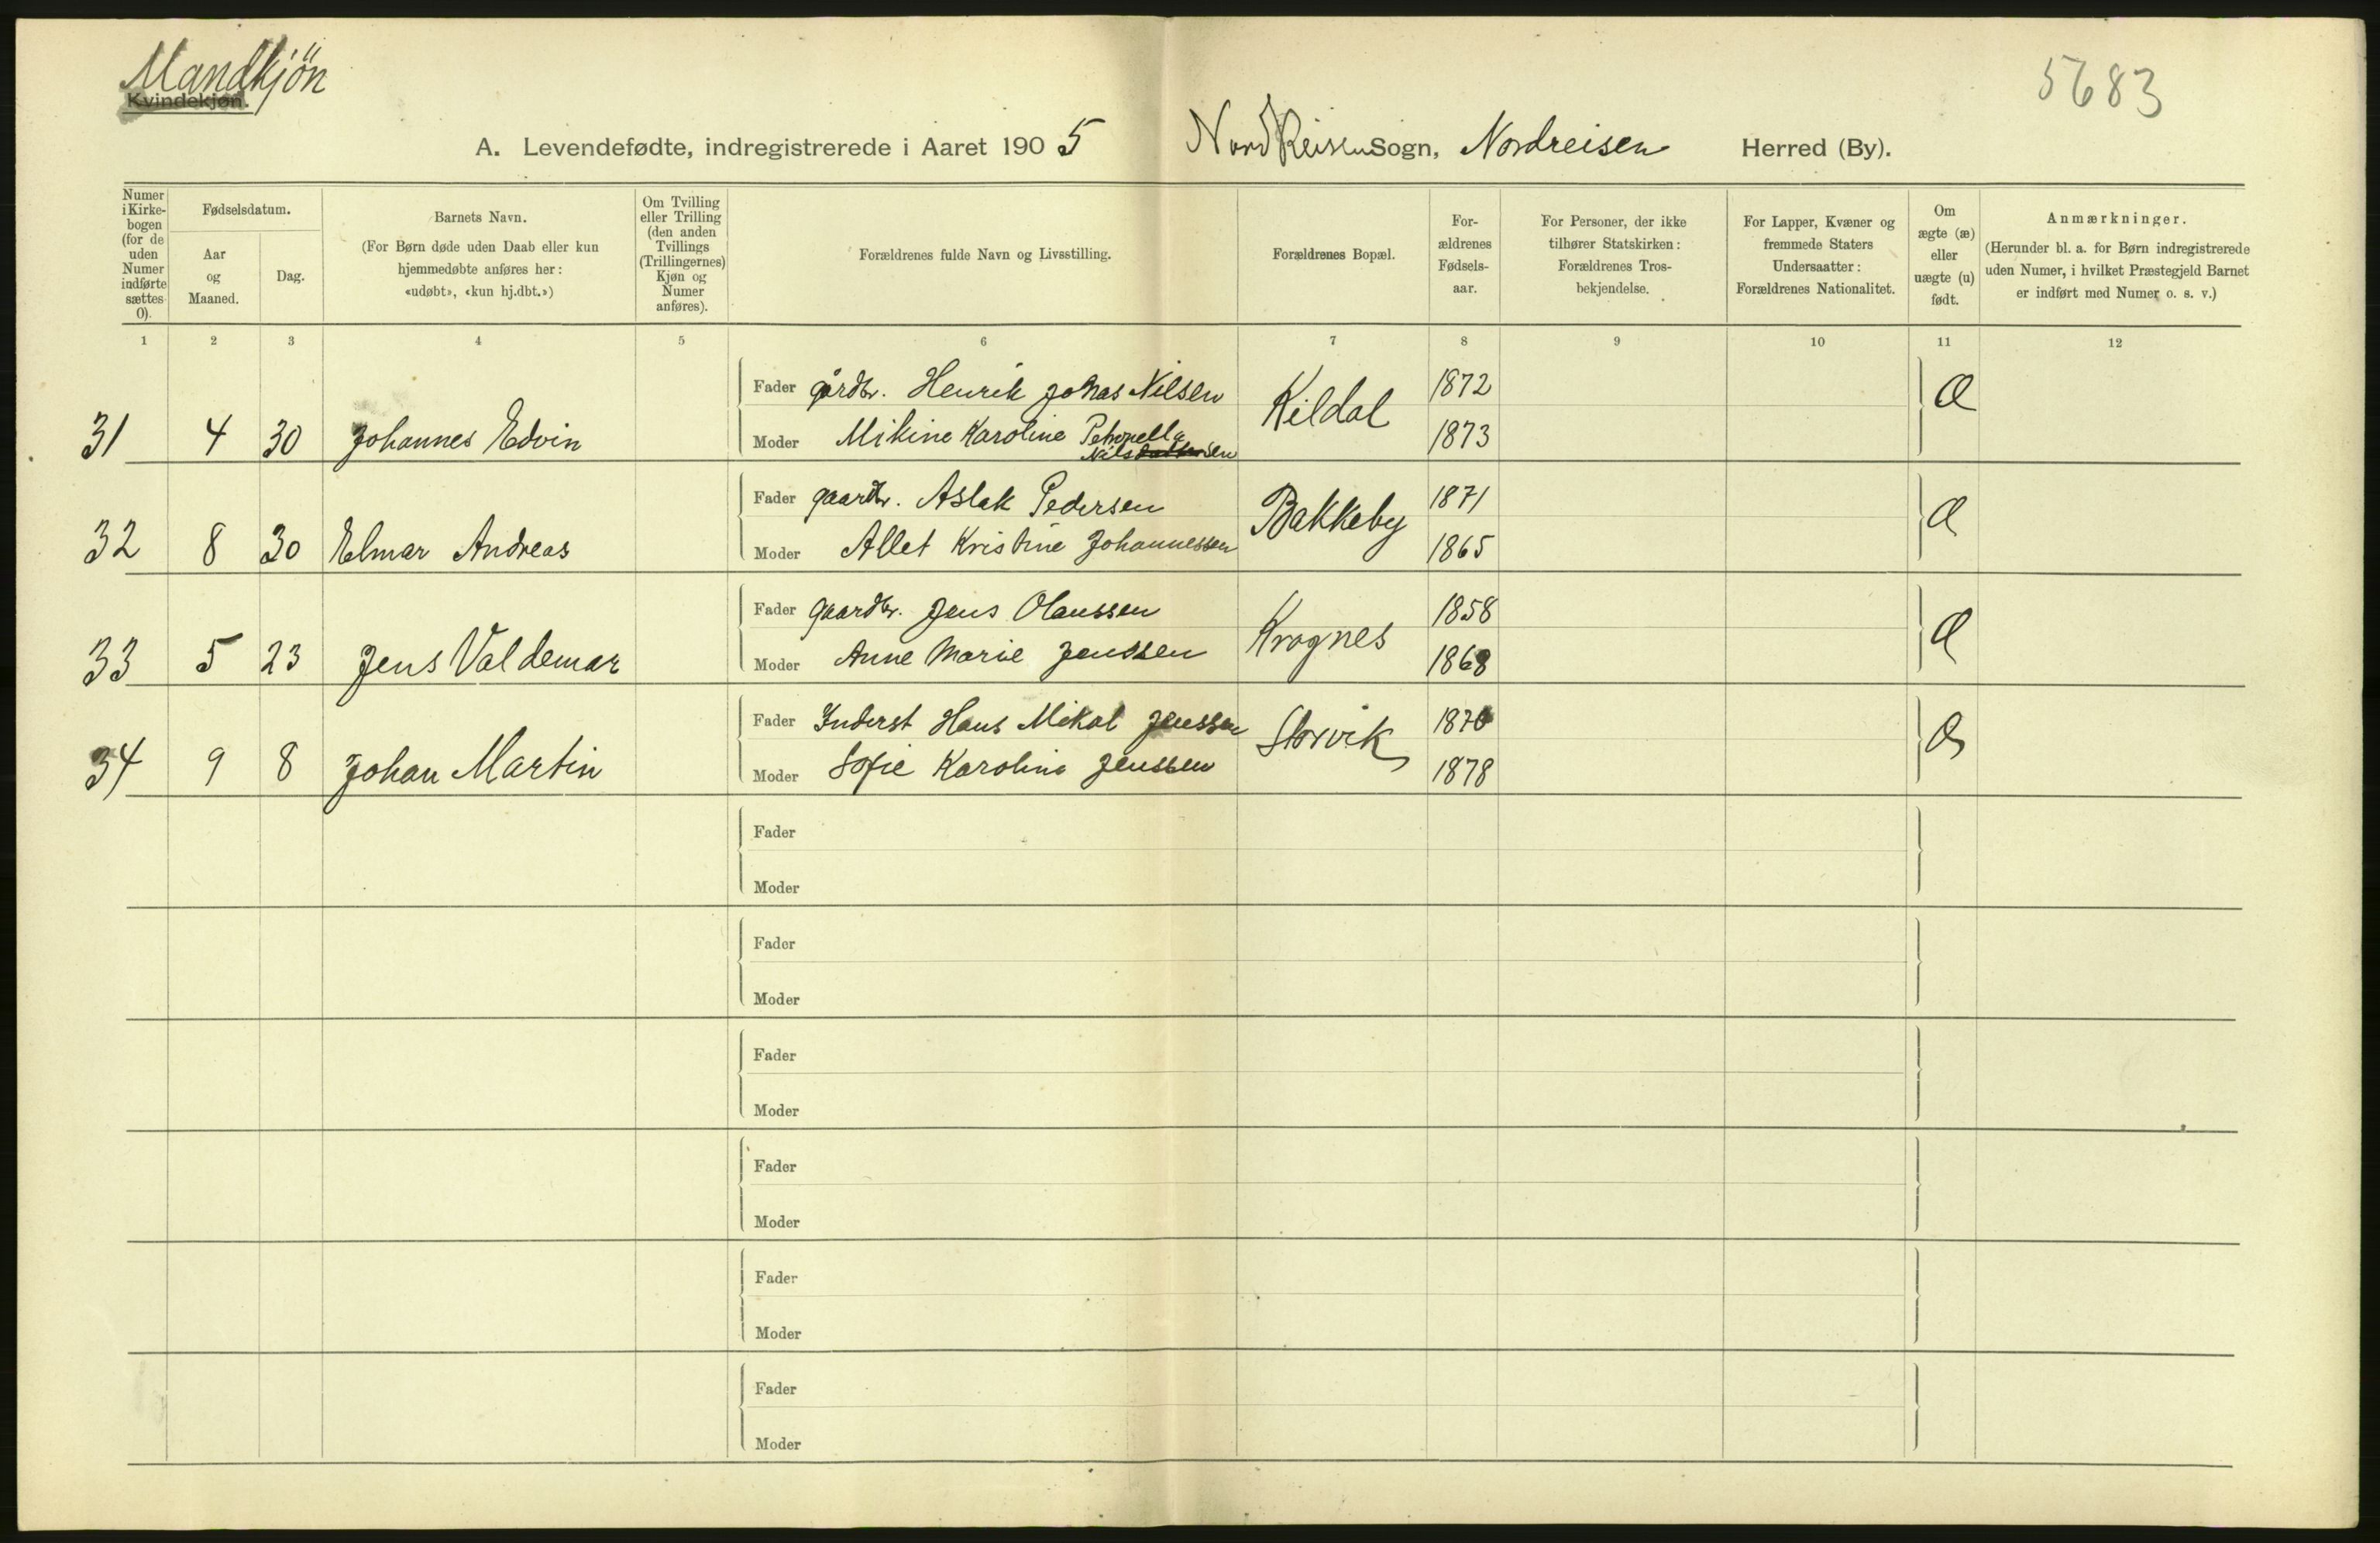 Mandkjön
Kvindekjøn.
5683
A. Levendefødte, indregistrerede i Aaret 1905 NordReisen Sogn, Nordreisen Herred (By).
Numer i Kirkebogen (for de uden Numer indførte sættes 0).
Fødselsdatum.
Aar og Maaned.
Dag.
Barnets Navn.
(For Børn døde uden Daab eller kun hjemmedøbte anføres her: «udøbt», «kun hj.dbt.»)
Om Tvilling eller Trilling (den anden Tvillings (Trillingernes) Kjøn og Numer anføres).
Forældrenes fulde Navn og Livsstilling.
Forældrenes Bopæl.
For-ældrenes Fødsels-aar.
For Personer, der ikke tilhører Statskirken: Forældrenes Tros-bekjendelse.
For Lapper, Kvæner og fremmede Staters Undersaatter: Forældrenes Nationalitet.
Om ægte (æ) eller uægte (u) født.
Anmærkninger.
(Herunder bl. a. for Børn indregistrerede uden Numer, i hvilket Præstegjeld Barnet er indført med Numer o. s. v.)
1 2 3 4 5 6 7 8 9 10 11 12
Fader gårdbr. Henrik Johas Nilsen Kildal 1872 Æ
31 4 30 Johannes Edvin Moder Mikine Karoline Petronella 1873
Nilsdattersen
Fader gaardbr. Aslak Pedersen Bakkeby 1871 Æ
32 8 30 Elmar Andreas Moder Allet Kristine Johannessen 1865
Fader gaardbr. Jens Olaussen Krognes 1858 Æ
33 5 23 Jens Valdemar Moder Anne Marie Janssen 1868
Fader Inderst Hans Mikal Jenssen Storvik 1870 Æ
34 9 8 Johan Martin Moder Sofie Karoline Jenssen 1878
Fader
Moder
Fader
Moder
Fader
Moder
Fader
Moder
Fader
Moder
Fader
Moder